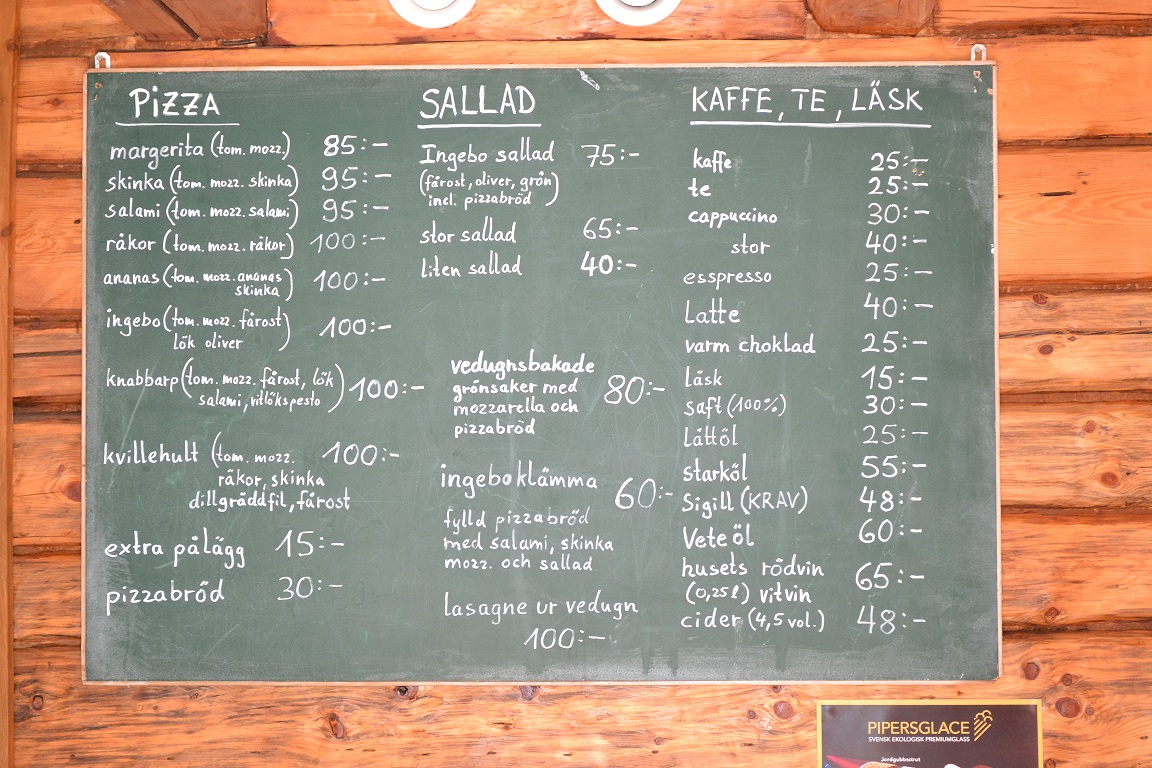 PIZZA
margerita (tom. mozz.) 85:-
skinka (tom. mozz. skinka) 95:-
salami (tom. mozz. salami) 95:-
räkor (tom. mozz. räkor) 100:-
ananas (tom. mozz. ananas 100:-
skinka)
ingebo (tom. mozz. fårost) 100:-
lök oliver
knabbarp (tom. mozz. fårost, lök) 100:-
salami, vitlökspesto
kvillehult (tom. mozz. 100:-
räkor, skinka
dillgräddfil, fårost
extra pålägg 15:-
pizzabröd 30:-
SALLAD
Ingebo sallad 75:-
(fårost, oliver, grön)
incl. pizzabröd
stor sallad 65:-
liten sallad 40:-
vedugnsbakade
grönsaker med 80:-
mozzarella och
pizzabröd
ingeboklämma 60:-
fylld pizzabröd
med salami, skinka
mozz. och sallad
lasagne ur vedugn
100:-
KAFFE, TE, LÄSK
kaffe 25:-
te 25:-
cappuccino 30:-
stor 40:-
esspresso 25:-
Latte 40:-
varm choklad 25:-
läsk 15:-
saft (100%) 30:-
lättöl 25:-
starköl 55:-
Sigill (KRAV) 48:-
Vete öl 60:-
husets rödvin 65:-
(0,25l) vitvin
cider (4,5 vol.) 48:-
PIPERSGLACE
SVENSK EKOLOGISK PREMIUMGLASS
Jordgubbsstrut